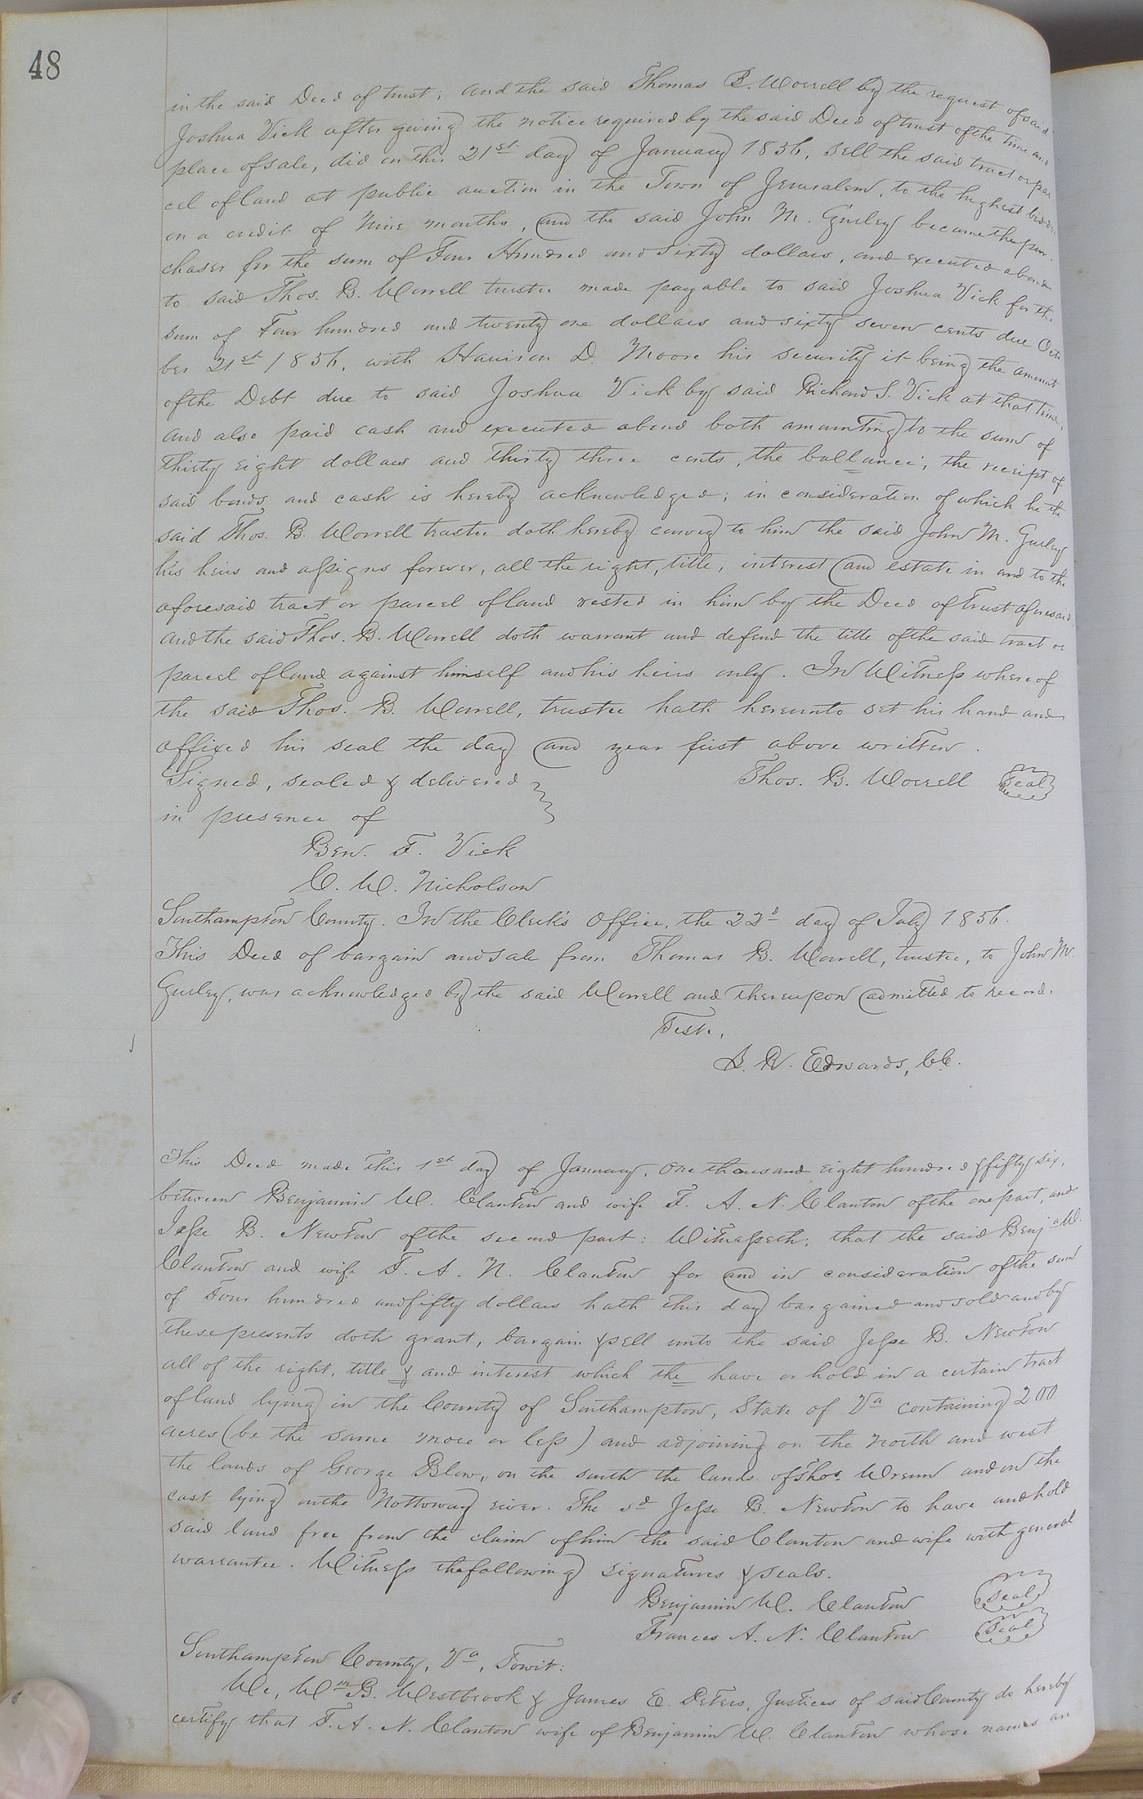 48
in the said Deed of trust; and the said Thomas B. Worrell by the request of said
Joshua Vick after giving the notice required by the said Deed of trust of the time and
place of sale, did on this 21st day of January 1856, sell the said tract or par
cel of land at public auction in the Town of Jerusalem, to the highest bidder
on a credit of Nine months, and the said John M. Gurley became the pur-
chaser for the sum of Four Hundred and Sixty dollars, and executed a bond
to said Thos. B. Worrell trustee made payable to said Joshua Vick for the
sum of Four hundred and twenty one dollars and sixty seven cents due Octo
ber 21st 1856, with Harrison D. Moore his security it being the amount
of the Debt due to said Joshua Vick by said Richard S. Vick at that time,
and also paid cash and executed a bond both amounting to the sum of
thirty eight dollars and thirty three cents, the ballance; the receipt of
said bonds and cash is hereby acknowledged; in consideration of which he the
said Thos. B. Worrell trustee doth hereby convey to him the said John M. Gurley
his heirs and assigns forever, all the right, title, interest and estate in and to the
aforesaid tract or parcel of land vested in him by the Deed of Trust aforesaid
and the said Thos. B. Worrell doth warrant and defend the title of the said tract or
parcel of land against himself and his heirs only. In Witness whereof
the said Thos. B. Worrell, trustee hath hereunto set his hand and
affixed his seal the day and year first above written.
Signed, sealed & delivered } Thos. B. Worrell Seal
in presence of
Ben. F. Vick
C. W. Nicholson
Southampton County. In the Clerk's Office, the 22d day of July 1856.
This Deed of bargain and sale from Thomas B. Worrell, trustee, to John M.
Gurley, was acknowledged by the said Worrell and thereupon admitted to record.
Teste,
L. R. Edwards, C.C.
This Deed made this 1st day of January, One thousand eight hundred & fifty six,
between Benjamin W. Clanton and wife F. A. N. Clanton of the one part, and
Jesse B. Newton of the second part: Witnesseth, that the said Benja W.
Clanton and wife F. A. N. Clanton for and in consideration of the sum
of Four hundred and fifty dollars hath this day bargained and sold and by
these presents doth grant, bargain & sell unto the said Jesse B. Newton
all of the right, title & and interest which the have or hold in a certain tract
of land lying in the County of Southampton, State of Va containing 200
acres (be the same more or less) and adjoining on the North and west
the lands of George Blow, on the south the lands of Thos. Wrenn and on the
east lying on the Nottoway river. The sd Jesse B. Newton to have and hold
said land free from the claim of him the said Clanton and wife with general
warrantee. Witness the following signatures & seals.
Benjamin W. Clanton Seal
Frances A. N. Clanton Seal
Southampton County, Va, Towit:
We, Wm B. Westbrook & James E. Peters, Justices of said County do hereby
certify that F. A. N. Clanton wife of Benjamin W. Clanton whose names are